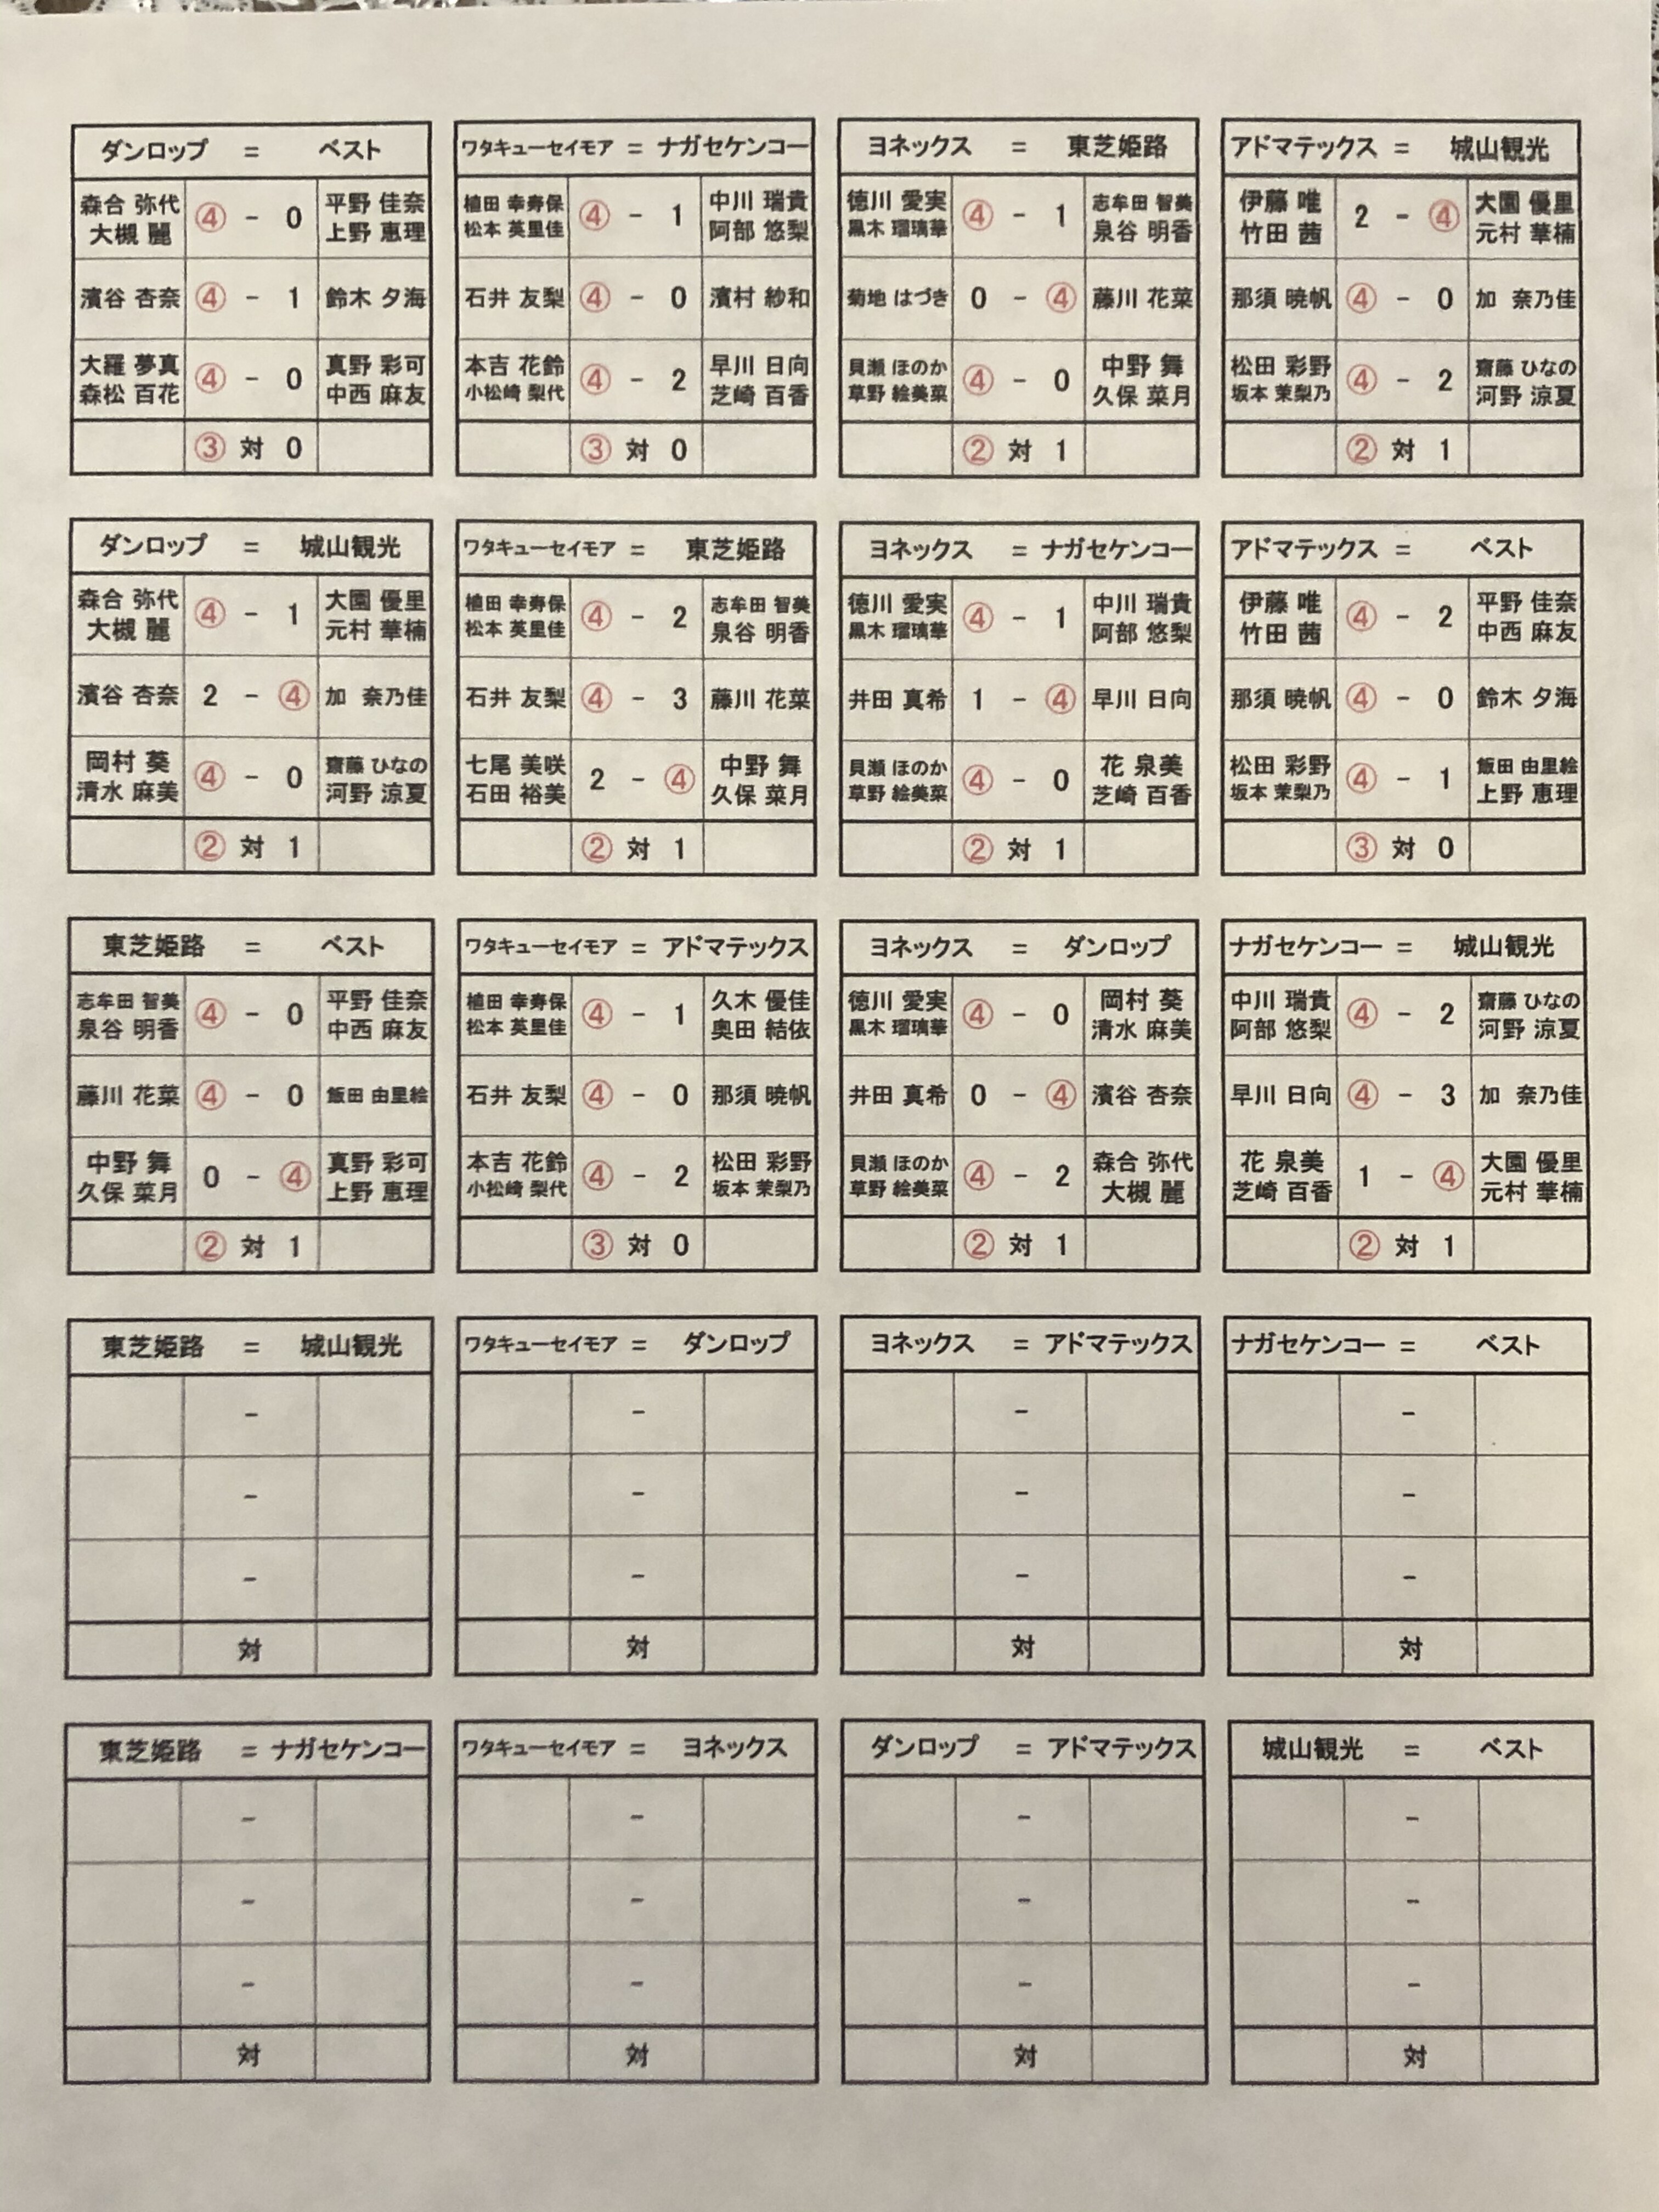 ダンロップ = ベスト
森合 弥代 大槻 麗 ④ - 0 平野 佳奈 上野 恵理
濱谷 杏奈 ④ - 1 鈴木 夕海
大羅 夢真 森松 百花 ④ - 0 真野 彩可 中西 麻友
③ 対 0
ワタキューセイモア = ナガセケンコー
植田 幸寿保 松本 英里佳 ④ - 1 中川 瑞貴 阿部 悠梨
石井 友梨 ④ - 0 濱村 紗和
本吉 花鈴 小松崎 梨代 ④ - 2 早川 日向 芝崎 百香
③ 対 0
ヨネックス = 東芝姫路
徳川 愛実 黒木 瑠璃華 ④ - 1 志牟田 智美 泉谷 明香
菊地 はづき 0 - ④ 藤川 花菜
貝瀬 ほのか 草野 絵美菜 ④ - 0 中野 舞 久保 菜月
② 対 1
アドマテックス = 城山観光
伊藤 唯 竹田 茜 2 - ④ 大園 優里 元村 華楠
那須 暁帆 ④ - 0 加 奈乃佳
松田 彩野 坂本 茉梨乃 ④ - 2 齋藤 ひなの 河野 涼夏
② 対 1
ダンロップ = 城山観光
森合 弥代 大槻 麗 ④ - 1 大園 優里 元村 華楠
濱谷 杏奈 2 - ④ 加 奈乃佳
岡村 葵 清水 麻美 ④ - 0 齋藤 ひなの 河野 涼夏
② 対 1
ワタキューセイモア = 東芝姫路
植田 幸寿保 松本 英里佳 ④ - 2 志牟田 智美 泉谷 明香
石井 友梨 ④ - 3 藤川 花菜
七尾 美咲 石田 裕美 2 - ④ 中野 舞 久保 菜月
② 対 1
ヨネックス = ナガセケンコー
徳川 愛実 黒木 瑠璃華 ④ - 1 中川 瑞貴 阿部 悠梨
井田 真希 1 - ④ 早川 日向
貝瀬 ほのか 草野 絵美菜 ④ - 0 花 泉美 芝崎 百香
② 対 1
アドマテックス = ベスト
伊藤 唯 竹田 茜 ④ - 2 平野 佳奈 中西 麻友
那須 暁帆 ④ - 0 鈴木 夕海
松田 彩野 坂本 茉梨乃 ④ - 1 飯田 由里絵 上野 恵理
③ 対 0
東芝姫路 = ベスト
志牟田 智美 泉谷 明香 ④ - 0 平野 佳奈 中西 麻友
藤川 花菜 ④ - 0 飯田 由里絵
中野 舞 久保 菜月 0 - ④ 真野 彩可 上野 恵理
② 対 1
ワタキューセイモア = アドマテックス
植田 幸寿保 松本 英里佳 ④ - 1 久木 優佳 奥田 結依
石井 友梨 ④ - 0 那須 暁帆
本吉 花鈴 小松崎 梨代 ④ - 2 松田 彩野 坂本 茉梨乃
③ 対 0
ヨネックス = ダンロップ
徳川 愛実 黒木 瑠璃華 ④ - 0 岡村 葵 清水 麻美
井田 真希 0 - ④ 濱谷 杏奈
貝瀬 ほのか 草野 絵美菜 ④ - 2 森合 弥代 大槻 麗
② 対 1
ナガセケンコー = 城山観光
中川 瑞貴 阿部 悠梨 ④ - 2 齋藤 ひなの 河野 涼夏
早川 日向 ④ - 3 加 奈乃佳
花 泉美 芝崎 百香 1 - ④ 大園 優里 元村 華楠
② 対 1
東芝姫路 = 城山観光
-
-
-
対
ワタキューセイモア = ダンロップ
-
-
-
対
ヨネックス = アドマテックス
-
-
-
対
ナガセケンコー = ベスト
-
-
-
対
東芝姫路 = ナガセケンコー
-
-
-
対
ワタキューセイモア = ヨネックス
-
-
-
対
ダンロップ = アドマテックス
-
-
-
対
城山観光 = ベスト
-
-
-
対